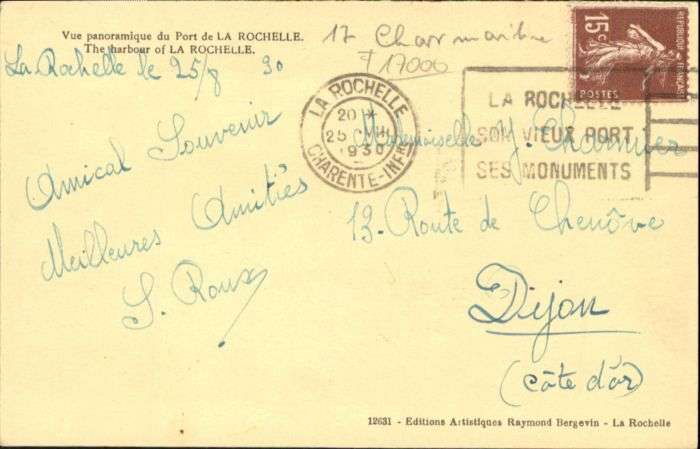 Vue panoramique du Port de LA ROCHELLE.
The harbour of LA ROCHELLE.
17 Char maritime
17000
La Rochelle le 25/8 30
Amical Souvenir
Meilleures Amitiés
S. Roux
LA ROCHELLE
20
25 VIII
1930
CHARENTE-INFRE
LA ROCHELLE
SON VIEUX PORT
SES MONUMENTS
REPUBLIQUE FRANÇAISE
15c
POSTES
Mademoiselle Y.
13 Route de Chenôve
Dijon
(côte d'or)
12631 - Editions Artistiques Raymond Bergevin - La Rochelle